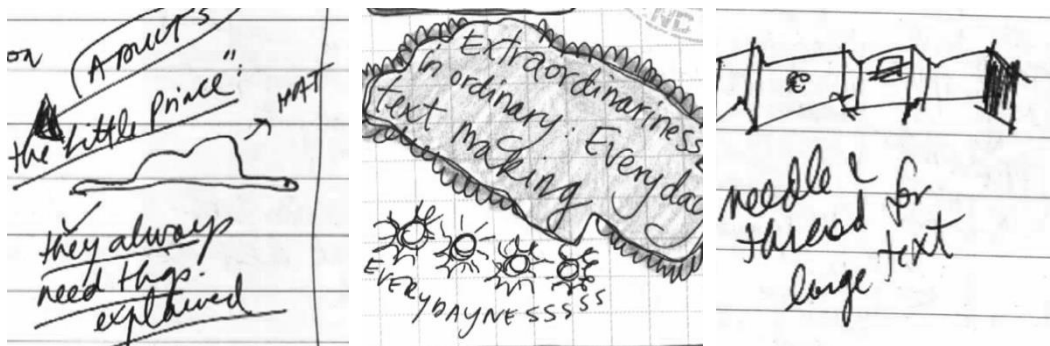 on
ADULTS
the "Little Prince":
HAT
they always
need thgs.
explained
NC
Extraordinariness
in ordinary: Everyday
text making
EVERYDAYNESSSSS
needle &
thread for
large text